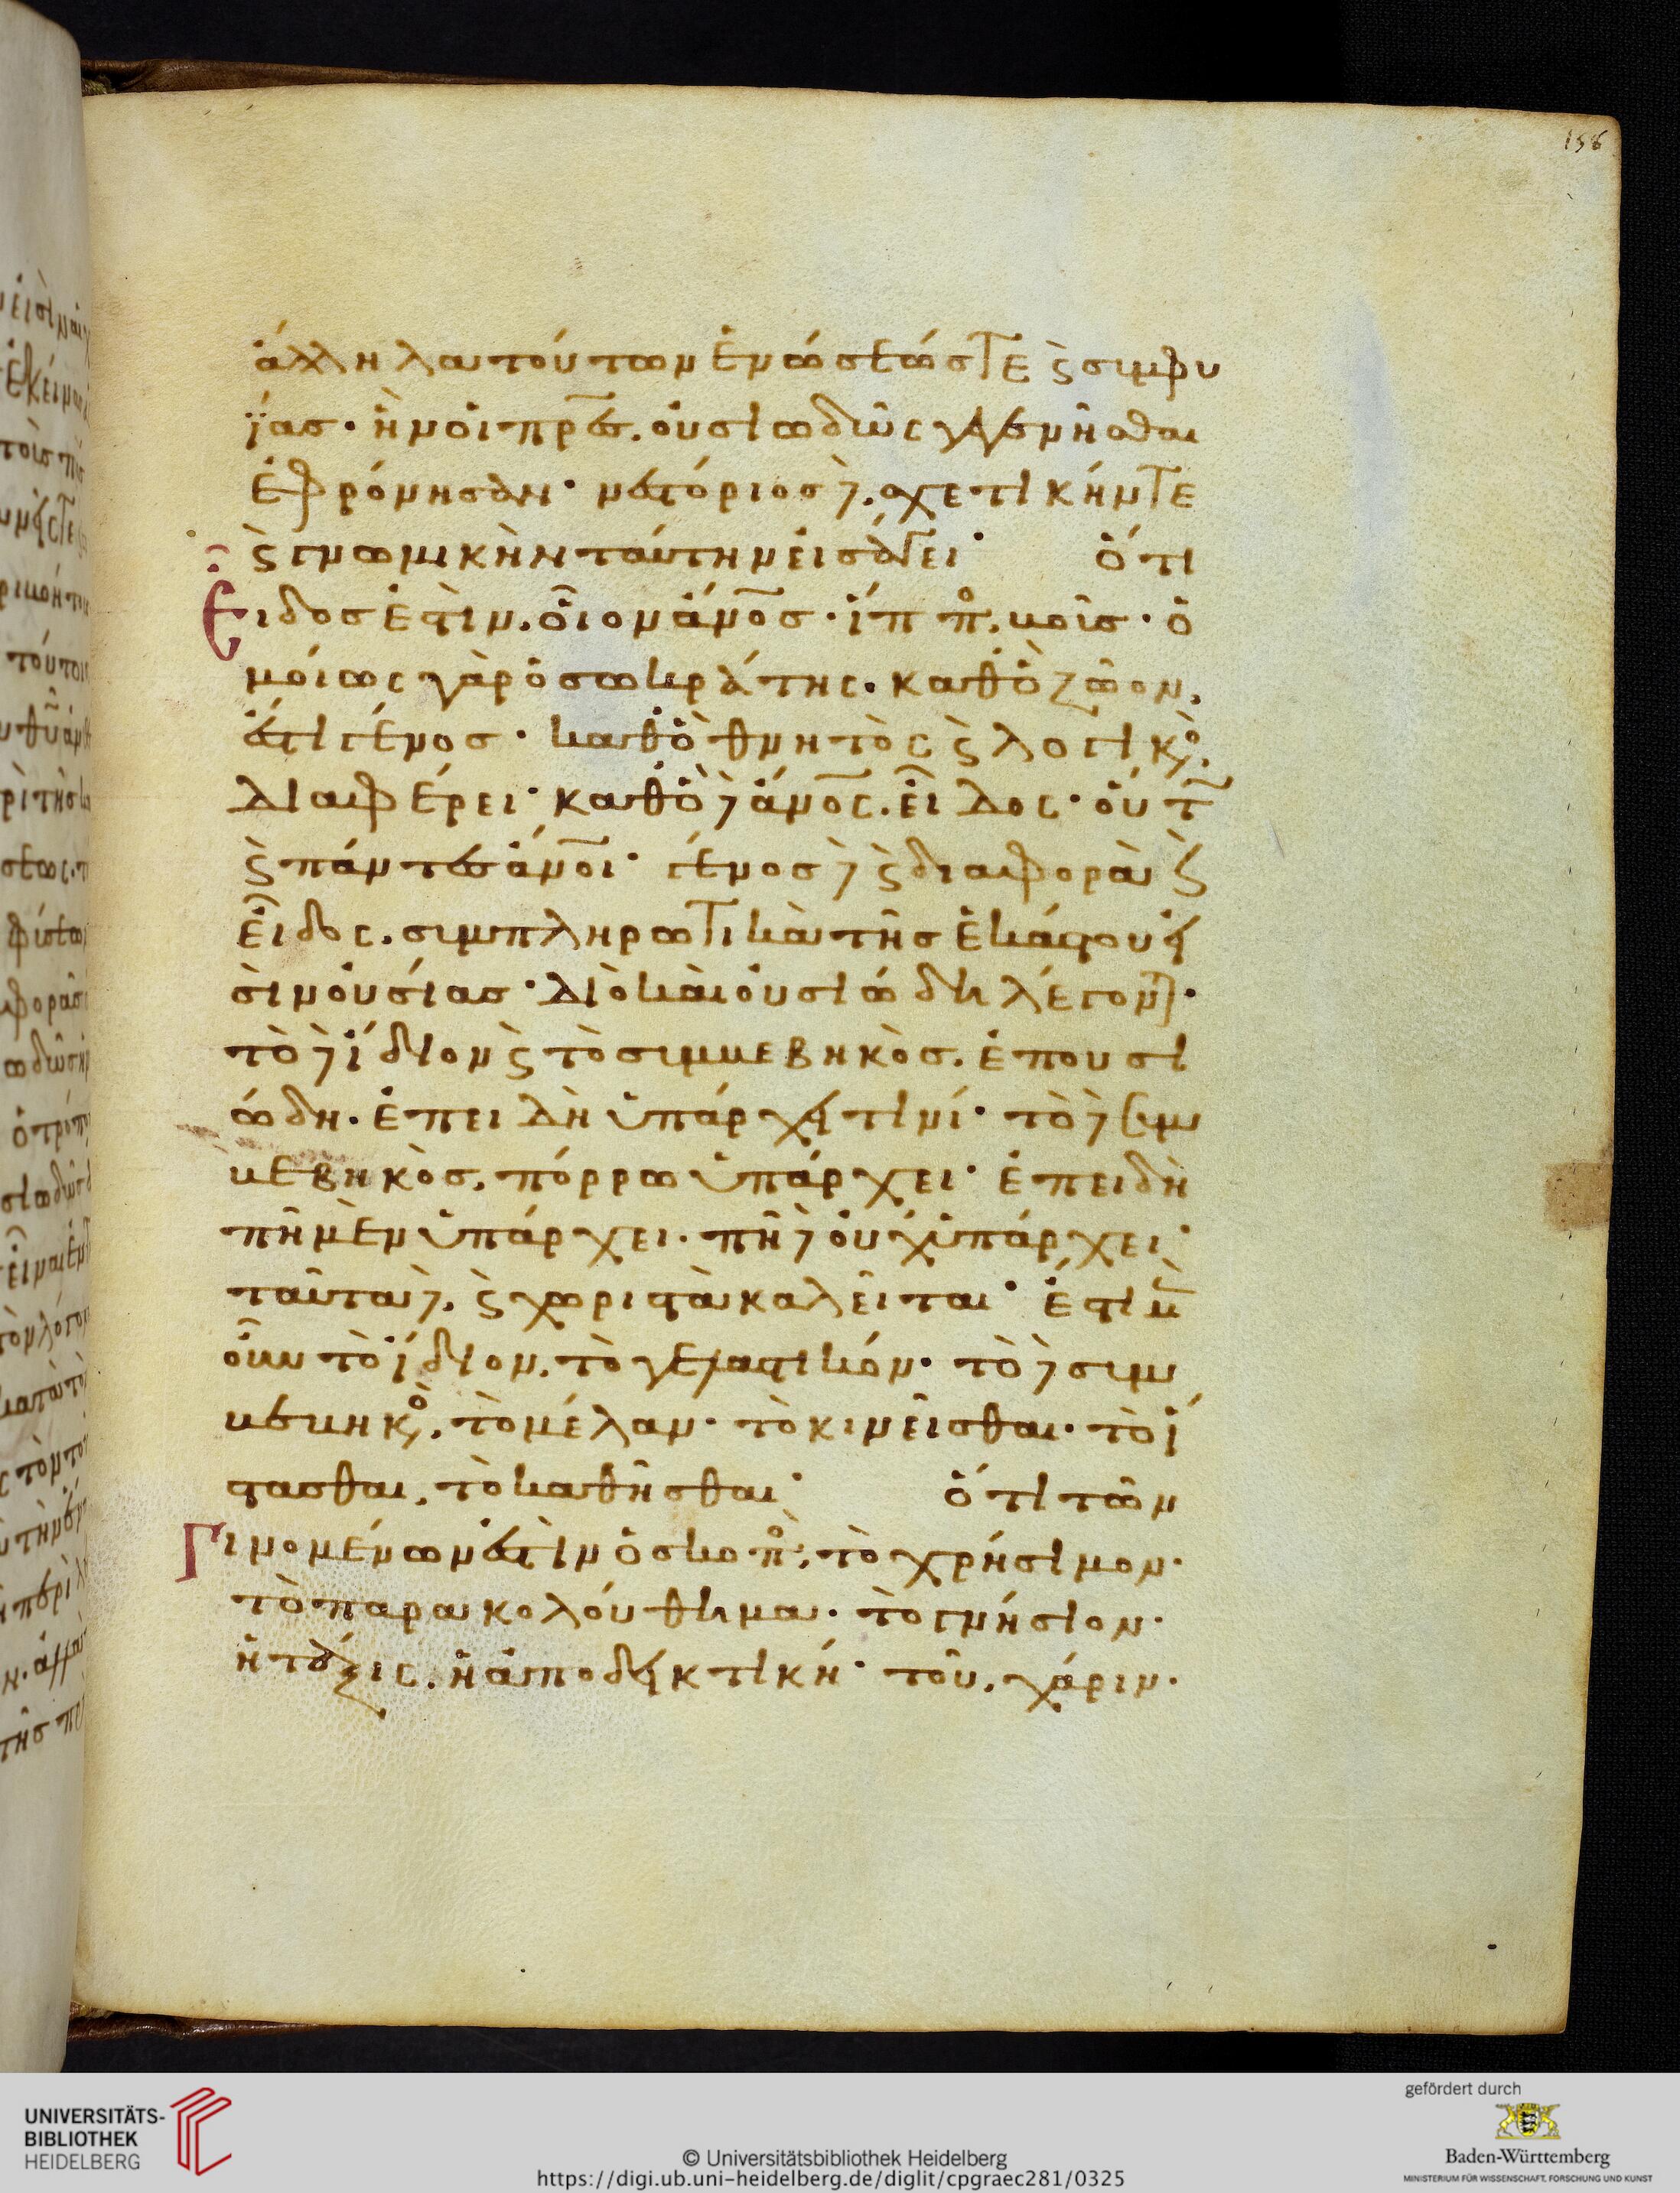 158
ἄλληλα τούτων ἑνώσεώς τε ϛ συμφυ
ΐας· ἣν οἱ πρ̅ες. οὐσιωδῶς γεγενῆσθαι
ἐφρόνησαν· νεστόριος δὲ. σχετικήν τε
ϛ γνωμικὴν ταύτην εἰσάγει· ὅτι
Εἶδος ἐστὶν. οἷον ἄν̅ος. ἵππο. κοῖσ. ὁ
μοίως γὰρ ὁ σωκράτης. καθὸ ζῶον.
ἐστὶ γένος· καθὸ θνητὸς ϛ λογικὸ.
διαφέρει· καθὸ δὲ ἄν̅ος. εἶδος· οὕτ
ϛ πάντες ἄν̅οι· γένος δὲ ϛ διαφορὰ ϛ
εἶδος. συμπληρωτικὰ τῆς ἑκάστου εἰ
σὶν οὐσίας· διὸ καὶ οὐσιώδη λέγον]·
τὸ δὲ ἴδιον ϛ τὸ συμμεβηκὸς. ἐπουσι
ώδη. ἐπειδὴ ὑπάρχει τινί· τὸ δὲ συμ
μεβηκὸς. πόρρω ὑπάρχει· ἐπειδὴ
πῆ μὲν ὑπάρχει. πῆ δὲ οὐχ ὑπάρχει·
ταῦτα δὲ. ϛ χωριστὰ καλεῖται· ἔστι μ
οὖν τὸ ἴδιον. τὸ γελαστικόν. τὸ δὲ συμ
κεκηκὸ. τὸ μέλαν. τὸ κινεῖσθαι. τὸ ἵ
στασθαι. τὸ καθῆσθαι· ὅτι τῶν
Γινομένων ἐστὶν ὁ σκοπὸ. τὸ χρήσιμον.
τὸ παρακολούθημα. τὸ γνήσιον.
ἡ τάξις. ἡ ἀποδεικτική· τοῦ. χάριν.
UNIVERSITÄTS-
BIBLIOTHEK
HEIDELBERG
© Universitätsbibliothek Heidelberg
https://digi.ub.uni-heidelberg.de/diglit/cpgraec281/0325
gefördert durch
Baden-Württemberg
MINISTERIUM FÜR WISSENSCHAFT, FORSCHUNG UND KUNST